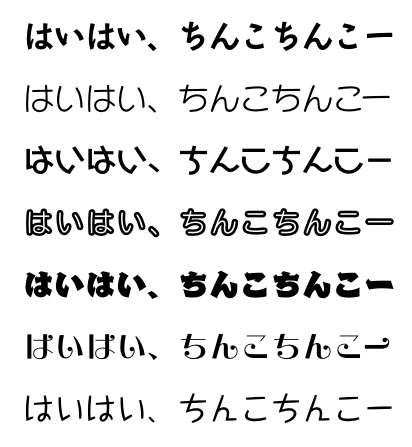 はいはい、ちんこちんこー
はいはい、ちんこちんこー
はいはい、ちんこちんこー
はいはい、ちんこちんこー
はいはい、ちんこちんこー
はいはい、ちんこちんこー
はいはい、ちんこちんこー